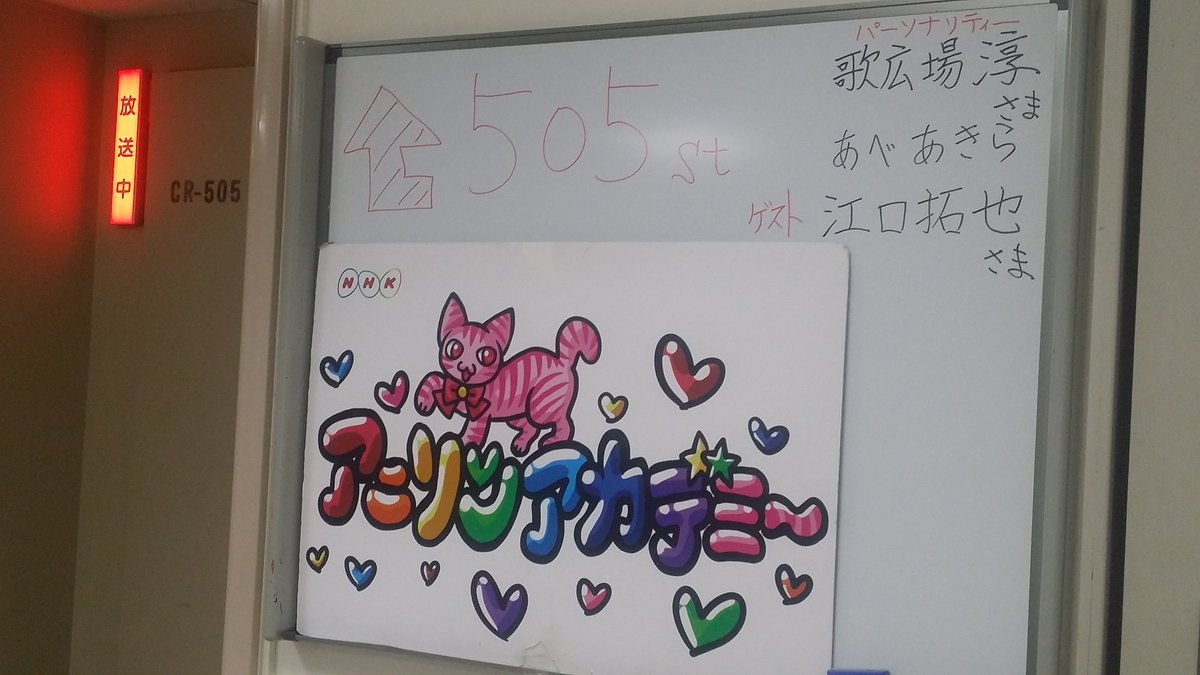 放送中
CR-505
505st
パーソナリティー
歌広場 淳
さま
あべあきら
ゲスト 江口拓也
さま
NHK
アニリンアカデミ～